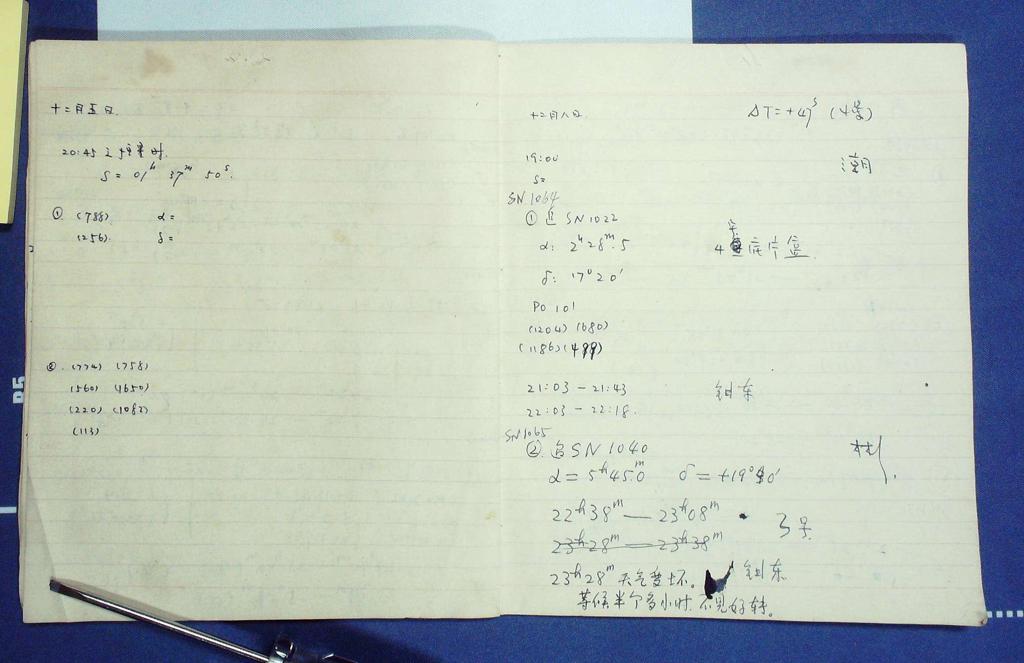 十二月五日.
20:45
S = 01ʰ 37ᵐ 50ˢ.
① (788) α =
(256) δ =
② (774) (758)
(560) (1650)
(220) (1082)
(113)
十二月八日.
ΔT = +47ˢ
19:00
S=
SN 1064
① 追 SN 1022
α: 2ʰ 28ᵐ.5
4 底片盒
δ: 17° 20′
PO 10′
(1204) (680)
(1186) (499)
21:03 — 21:43
22:03 — 22:18.
SN 1065
② 追 SN 1040
α = 5ʰ 45ᵐ.0 δ = +19°
22ʰ38ᵐ — 23ʰ08ᵐ 3号
23ʰ28ᵐ — 23ʰ38ᵐ
23ʰ28ᵐ 天气变坏。
等候半个多小时, 不见好转。